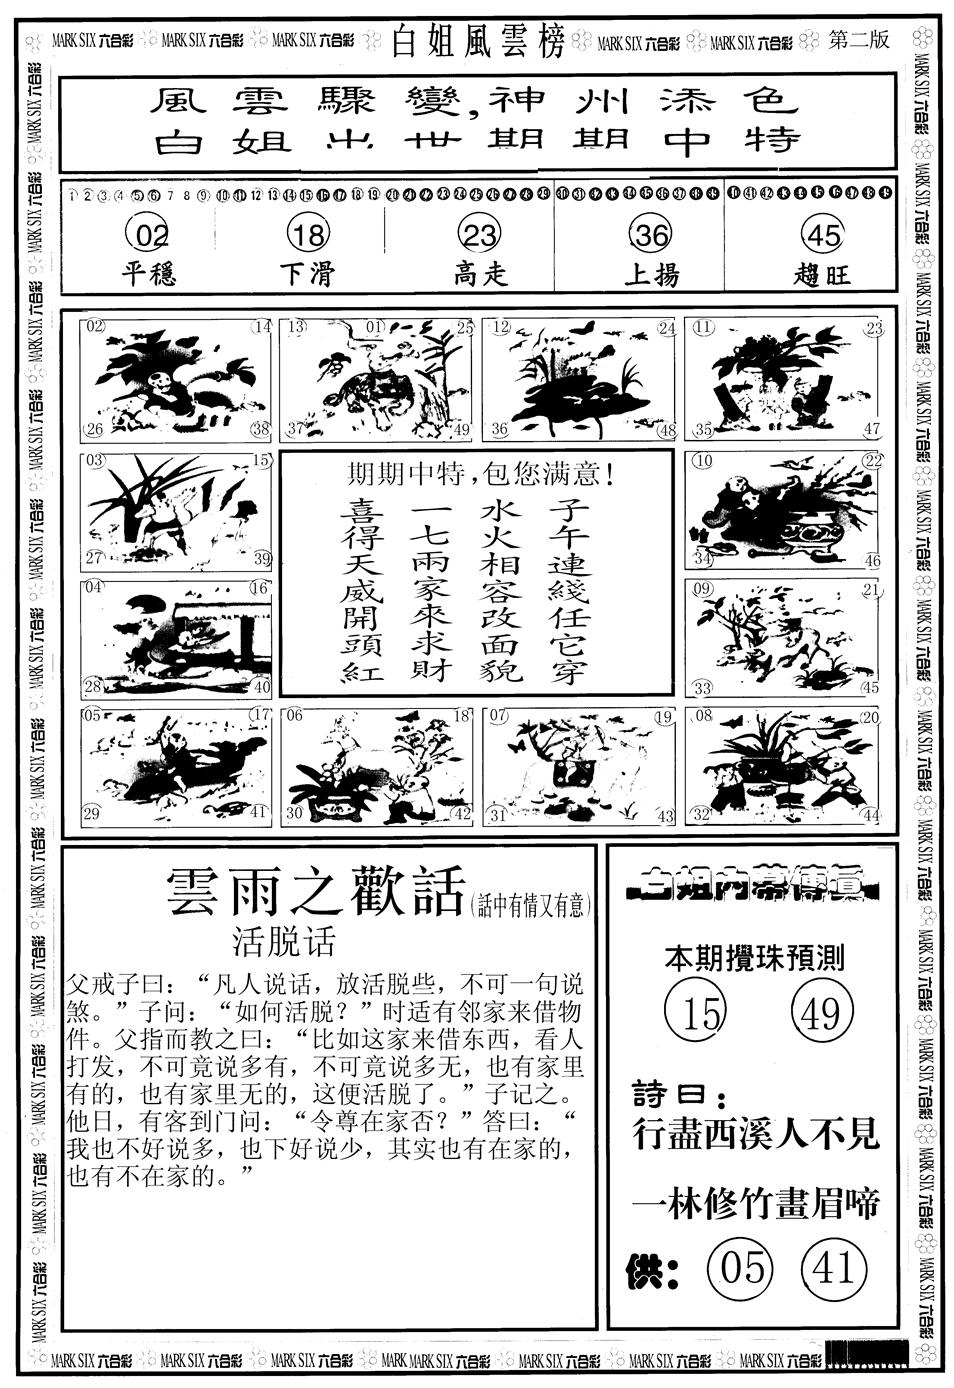 MARK SIX 六合彩 MARK SIX 六合彩 MARK SIX 六合彩 白姐風雲榜 MARK SIX 六合彩 MARK SIX 六合彩 第二版
風雲驟變,神州添色
白姐出世期期中特
1 2 3 4 5 6 7 8 9 10 11 12 13 14 15 16 17 18 19 20 21 22 23 24 25 26 27 28 29 30 31 32 33 34 35 36 37 38 39 40 41 42 43 44 45 46 47 48 49
02 18 23 36 45
平穩 下滑 高走 上揚 趨旺
02 14 13 01 25 12 24 11 23
26 38 37 49 36 48 35 47
03 15 10 22
27 39 34 46
04 16 09 21
28 40 33 45
05 17 06 18 07 19 08 20
29 41 30 42 31 43 32 44
期期中特,包您满意!
子午連綫任它穿
水火相容改面貌
一七兩家來求財
喜得天威開頭紅
雲雨之歡話(話中有情又有意)
活脱话
父戒子曰：“凡人说话，放活脱些，不可一句说
煞。”子问：“如何活脱？”时适有邻家来借物
件。父指而教之曰：“比如这家来借东西，看人
打发，不可竟说多有，不可竟说多无，也有家里
有的，也有家里无的，这便活脱了。”子记之。
他日，有客到门问：“令尊在家否？”答曰：“
我也不好说多，也下好说少，其实也有在家的，
也有不在家的。”
白姐内幕傳真
本期攪珠預測
15 49
詩曰：
行盡西溪人不見
一林修竹畫眉啼
供： 05 41
MARK SIX 六合彩 MARK SIX 六合彩 MARK SIX 六合彩 MARK MARK SIX 六合彩 MARK SIX 六合彩 MARK SIX 六合彩 MARK SIX 六合彩